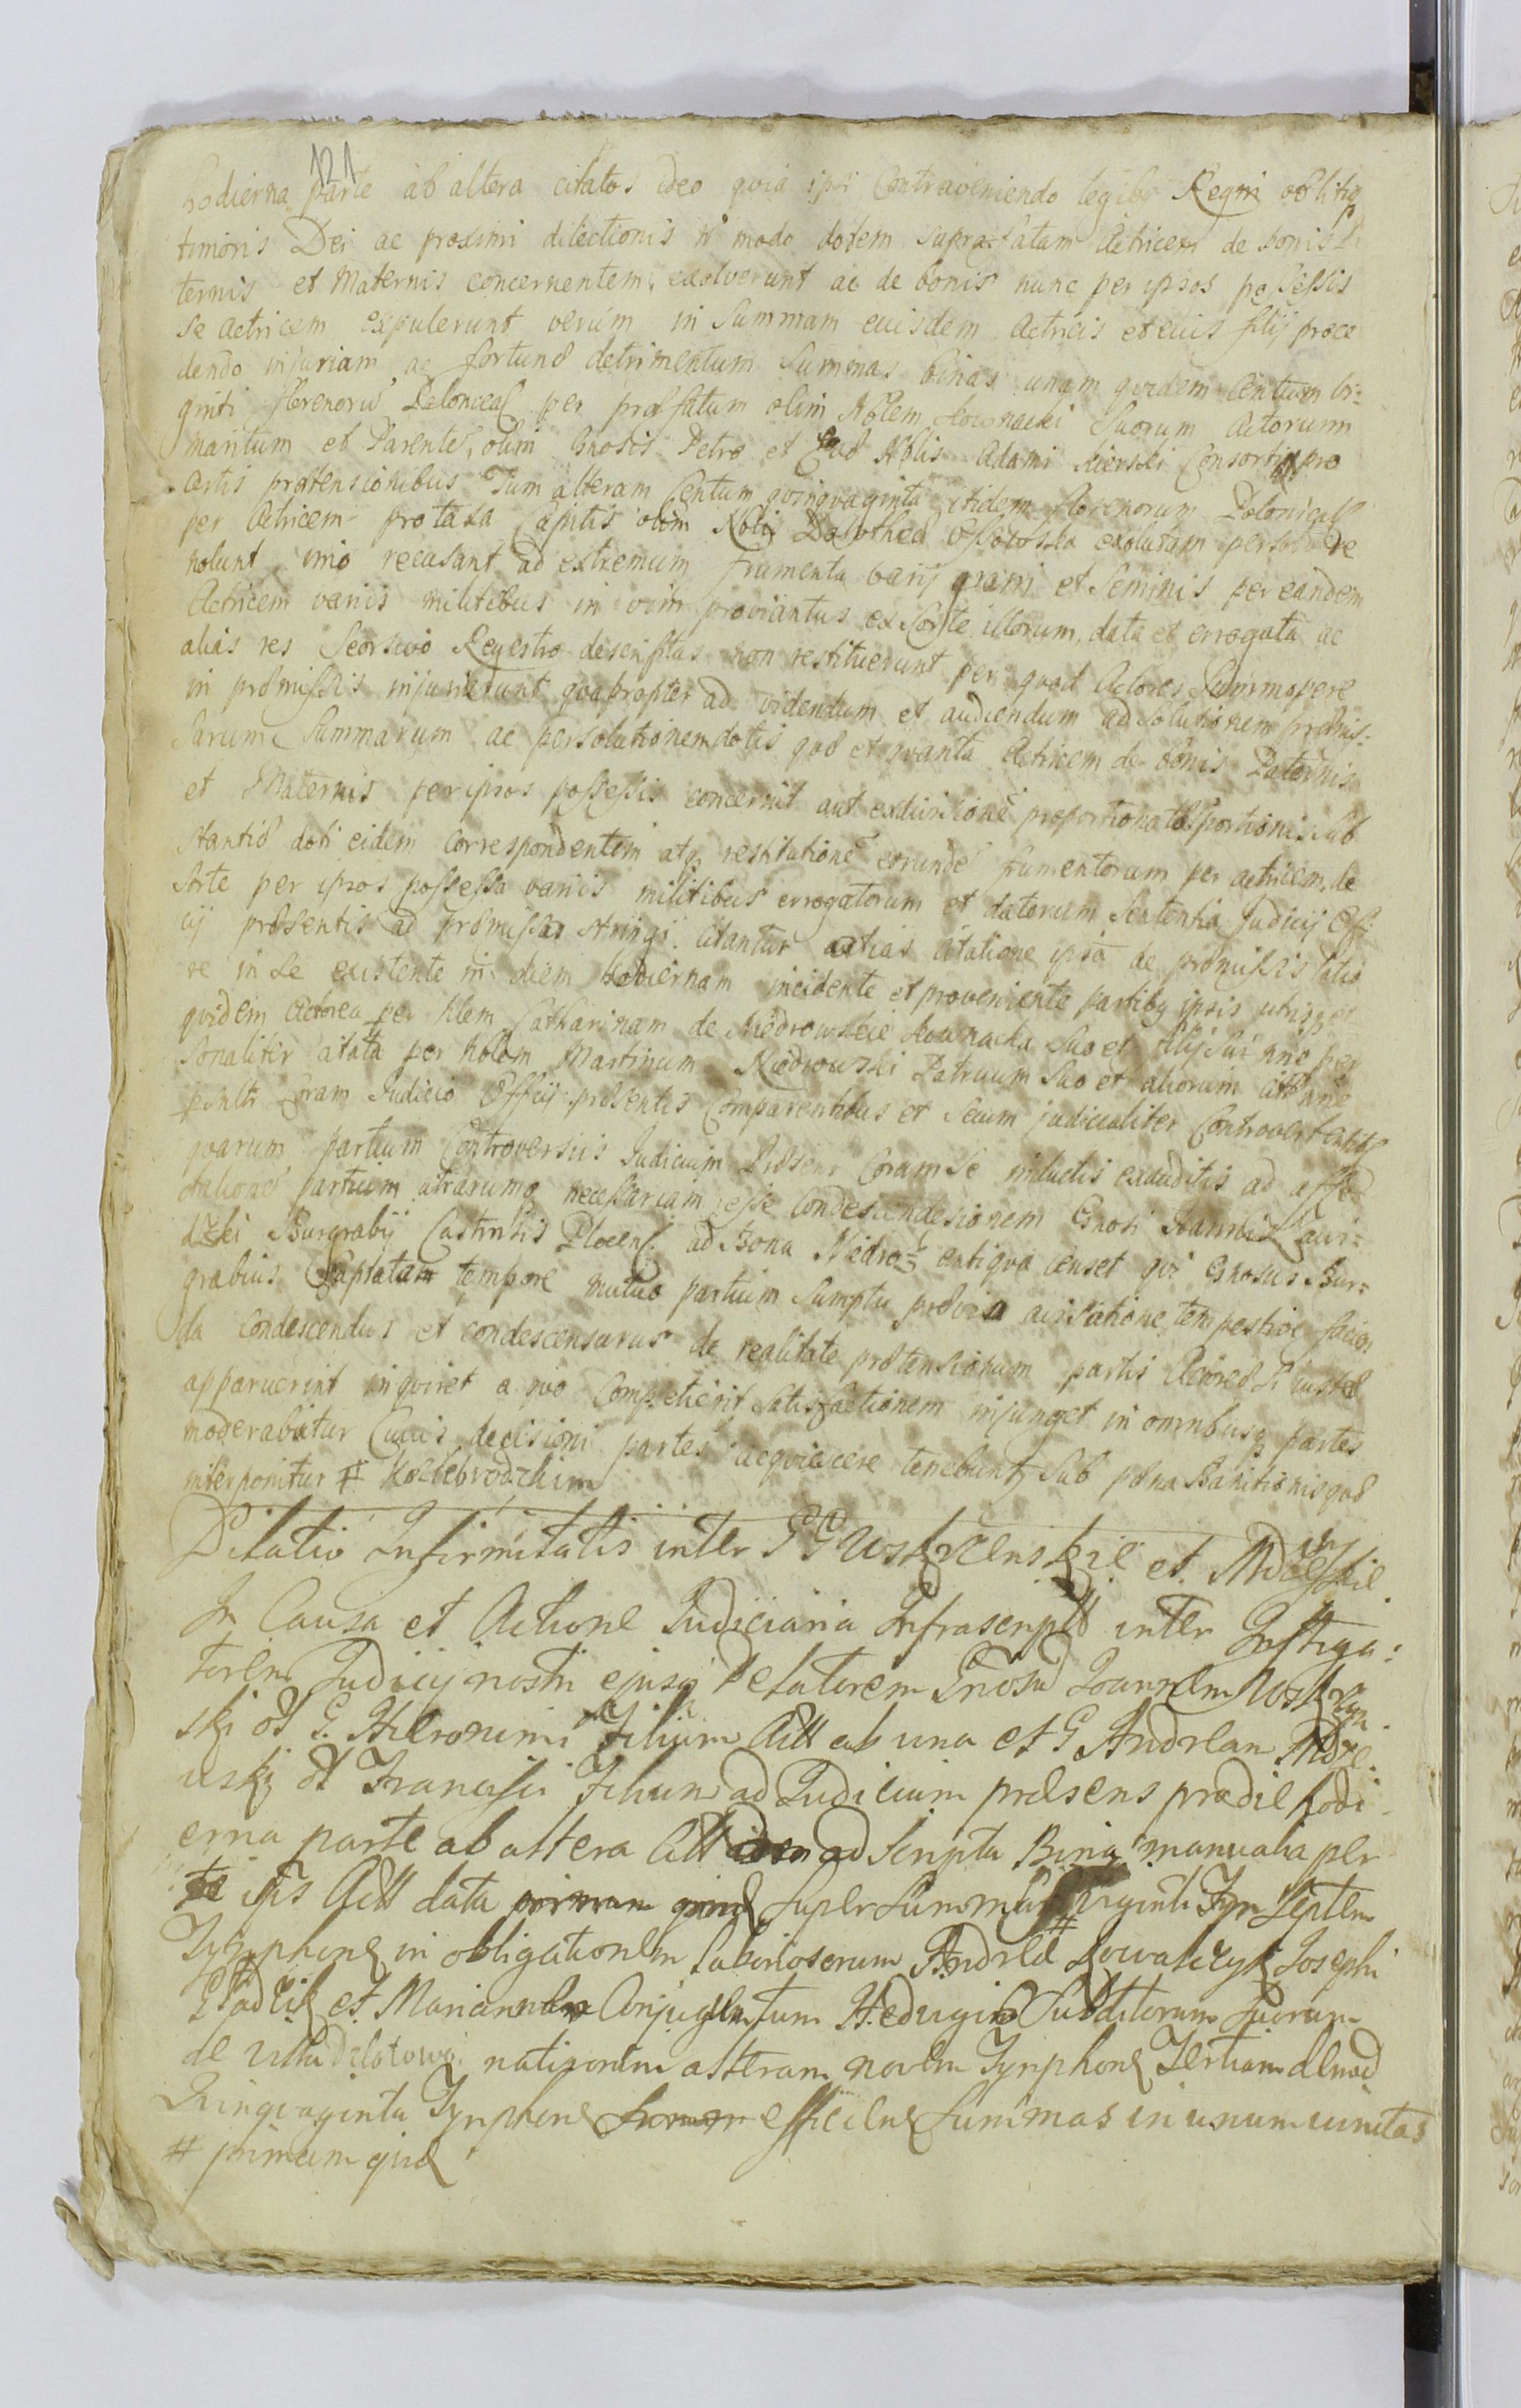 121
hodierna parte ab altera citatos ideo quia ipsi Contraveniendo legibs Regni oblitiq
timoris Dei ac proximi dilectionis n modo dotem suprafatam Actricem de bonis Pa
ternis et Maternis concernentem, exolverunt ac de bonis nunc per ipsos possessis
se actricem expulerunt verum in Summam eiusdem Actricis et eius filij proce
dendo injuriam ac fortunæ detrimentum Summas binas unam quidem Centum tri:
ginti florenorũ Polonical per præfatum olim Nblem Łownacki Suorum Actorum
maritum et Parentẽ, olim Gnosis Petro et Nblis Adami Kierski Consorti pro
certis prætensionibus Tum alteram Centum quinquaginta itidem florenorum Polonical
per Actricem pro taxa Capitis olim Nblis Dorothea Ossowska exolutam persolvere
nolunt imo recusant ad extremum frumenta varij grani et Seminis per eandem
Actricem variis militibus in vim proviantus ex Sorte illorum, data et errogata ac
alias res Seorsivo Regestro descriptas non restituerunt per quod Actores Summopere
in præmissis injuriarunt quapropter ad videndum et audiendum ad Solutionem præmis:
sarum Summarum ac persolutionem dotis quæ et quanta Actricem de bonis Paternis
et Maternis per ipsos possessis concernit aut exdivisionẽ proportionatæ portionis sub
stantiæ doti eidem Correspondentem atq restitutionẽ eorundẽ frumentorum per actricem, de
Sorte per ipsos possessa variis militibus errogatorum et datorum Sententia Judicij Offi
cij præsentis ad præmissa stringi. Citantur actias Citatione ipsa de præmissis latio
re in se existente in diem hodiernam incidente et proveniente partibq ipsis utrisq
quidem Actorea per Nlem Catharinam de Niedrowskie Łownacka Suo et filij Sui nne per
sonaliter citata per Noblem Martinum Niedrowski Patruum Suo et aliorum citt nne
psnltr Coram Judicio Officij præsentis Comparentibus et Secum judicialiter Controvertentibs
quarum partium Controversiis Judicium Præsens Coram Se inductis exauditis ad affe
ctationẽ partium utrarumq necessariam esse Condescendesionem Gnosi Joannis Lawi:
dzki Burgrabij Castrensis Plocens. ad Bona Niedro: antiqua Censet qui Gnosus Bur:
grabius Captata tempore mutuo partium Sumptu prævia avisatione tempestive facien
da Condescendus et condescensurus de realitate prætensionum partis Actoreæ Si iustæ
apparuerint inquiret a quo Competierit Satisfactionem injunget in omnibusq partes
moderabitur Cuius decisioni partes acquiescere tenebunt Sub pœna Banitionis quæ
interponitur # Koziebrodzkim
Dilatio Infirmitatis inter GG Uszynskie et Mdzewskie
In Causa et Actione Judiciaria Infrascripta inter Instiga:
torem Judicij nostri ejusq Delatorem Gnosũ Joannem
ski olt G. Hieronimi Filium Act ab una et G Andream Mdze:
wski olt Francisci Filium ad Judicium præsens prædie hodi
erna parte ab altera Citt ad Scripta Bina manualia per
ipũs Citt data Super Summas viginti Septem
Tynphones in obligationem laboriosorum Andreæ Kowalczyk Josephi
Gładzik et Mariannæ Conjugum tum Hedvigis Subditorum Suorum
de Villa Zlotowo natisontm alteram novem Tynphones Tertiam denad
Quinquaginta Tynphones efficiens Summas in unum unitas
# primam quid